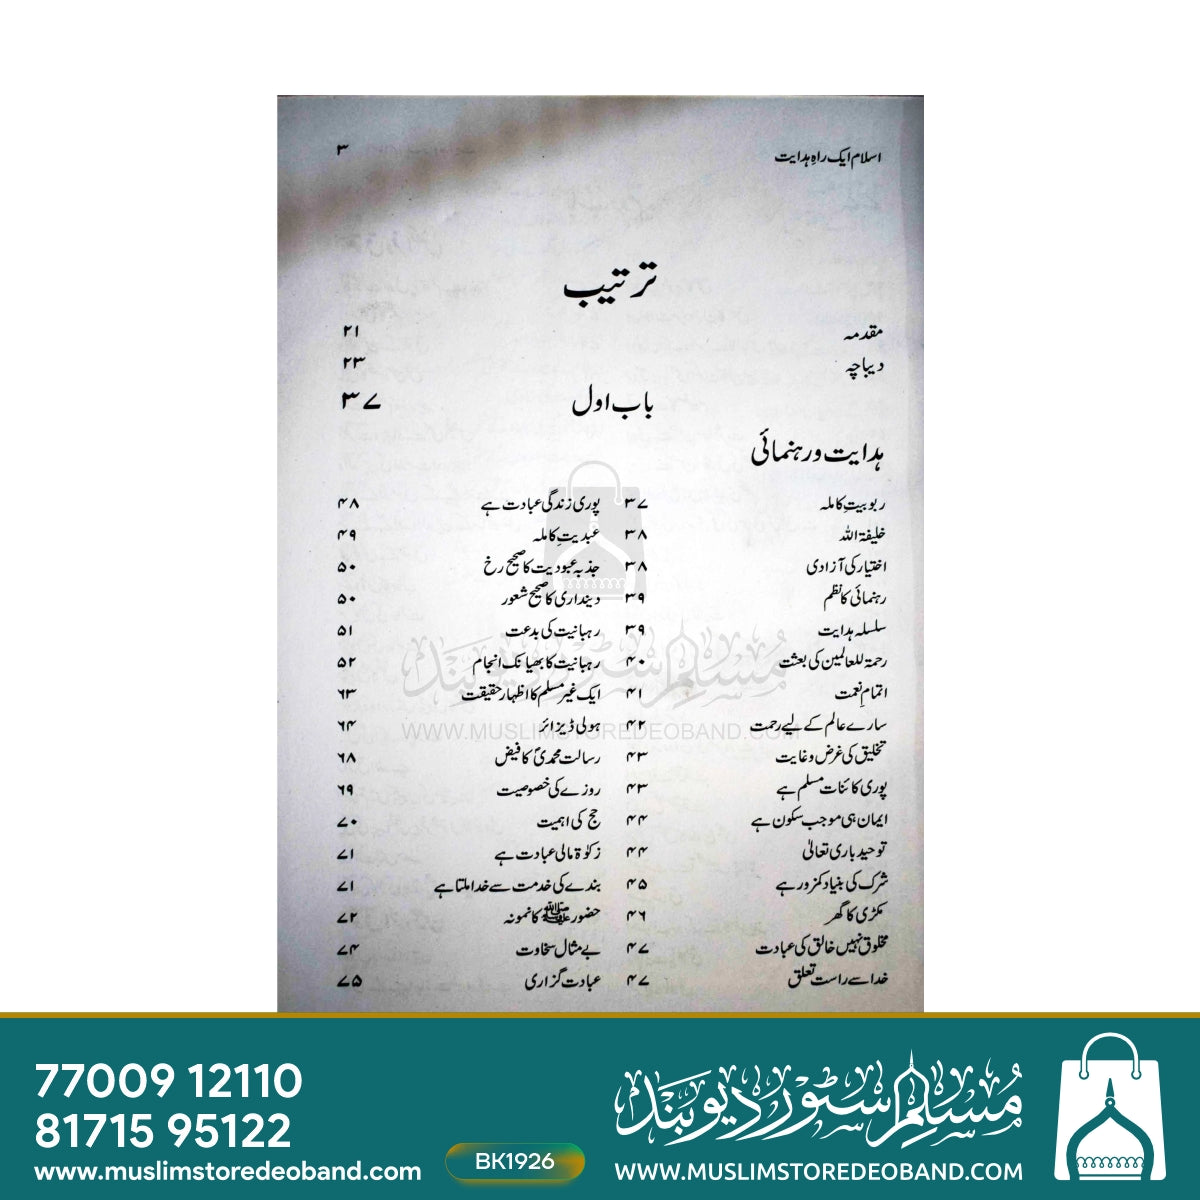 اسلام ایک راہ ہدایت ۳
ترتیب
مقدمہ ۲۱
دیباچہ ۲۳
باب اول ۳۷
ہدایت ورہنمائی
ربوبیتِ کاملہ ۳۷
خلیفۃ اللہ ۳۸
اختیار کی آزادی ۳۸
رہنمائی کا نظم ۳۹
سلسلہ ہدایت ۳۹
رحمۃ للعالمین کی بعثت ۴۰
اتمامِ نعمت ۴۱
سارے عالم کے لیے رحمت ۴۲
تخلیق کی غرض وغایت ۴۳
پوری کائنات مسلم ہے ۴۳
ایمان ہی موجب سکون ہے ۴۴
توحید باری تعالیٰ ۴۴
شرک کی بنیاد کمزور ہے ۴۵
مکڑی کا گھر ۴۶
مخلوق نہیں خالق کی عبادت ۴۷
خدا سے راست تعلق ۴۷
پوری زندگی عبادت ہے ۴۸
عبدیتِ کاملہ ۴۹
جذبہ عبودیت کا صحیح رخ ۵۰
دینداری کا صحیح شعور ۵۰
رہبانیت کی بدعت ۵۱
رہبانیت کا بھیانک انجام ۵۲
ایک غیر مسلم کا اظہار حقیقت ۶۳
ہولی ڈیزائر ۶۴
رسالت محمدیؐ کا فیض ۶۸
روزے کی خصوصیت ۶۹
حج کی اہمیت ۷۰
زکوٰۃ مالی عبادت ہے ۷۱
بندے کی خدمت سے خدا ملتا ہے ۷۱
حضور ﷺ کا نمونہ ۷۲
بے مثال سخاوت ۷۴
عبادت گزاری ۷۵
مسلم سٹور دیوبند
WWW.MUSLIMSTOREDEOBAND.COM
77009 12110
81715 95122
www.muslimstoredeoband.com
BK1926
مسلم سٹور دیوبند
WWW.MUSLIMSTOREDEOBAND.COM